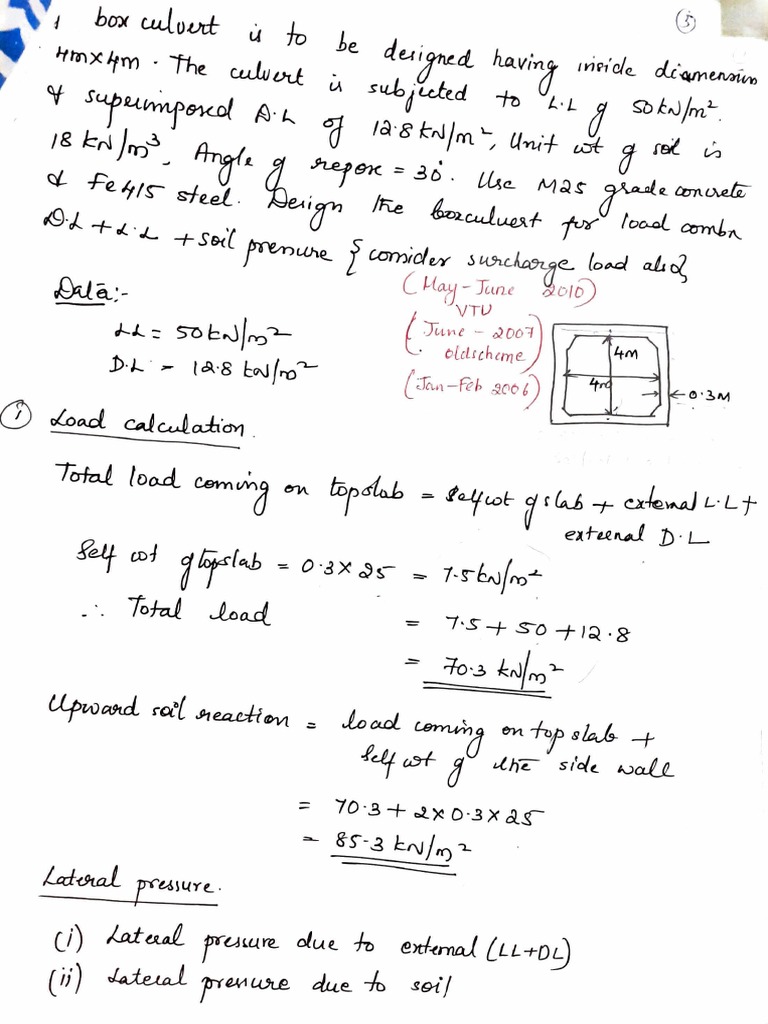 5
1 box culvert is to be designed having inside diamension
4m×4m. The culvert is subjected to L.L of 50kN/m².
& superimposed D.L of 12.8kN/m², Unit wt of soil is
18 kN/m³, Angle of repose = 30°. Use M25 grade concrete
& Fe415 steel. Design the boxculvert for load combn
D.L + L.L + soil pressure { consider surcharge load also}
Data:-
(May-June 2010)
VTU
(June - 2007
oldscheme)
(Jan-Feb 2006)
LL = 50kN/m²
D.L = 12.8 kN/m²
4M
4m
0.3M
1 Load calculation.
Total load coming on topslab = Selfwt of slab + external L.L +
exteenal D.L
Self wt of topslab = 0.3 × 25 = 7.5kN/m²
∴ Total load = 7.5 + 50 + 12.8
= 70.3 kN/m²
Upward soil reaction = load coming on top slab +
Self wt of the side wall
= 70.3 + 2×0.3×25
= 85.3 kN/m²
Lateral pressure.
(i) Lateral pressure due to external (LL+DL)
(ii) Lateral pressure due to soil